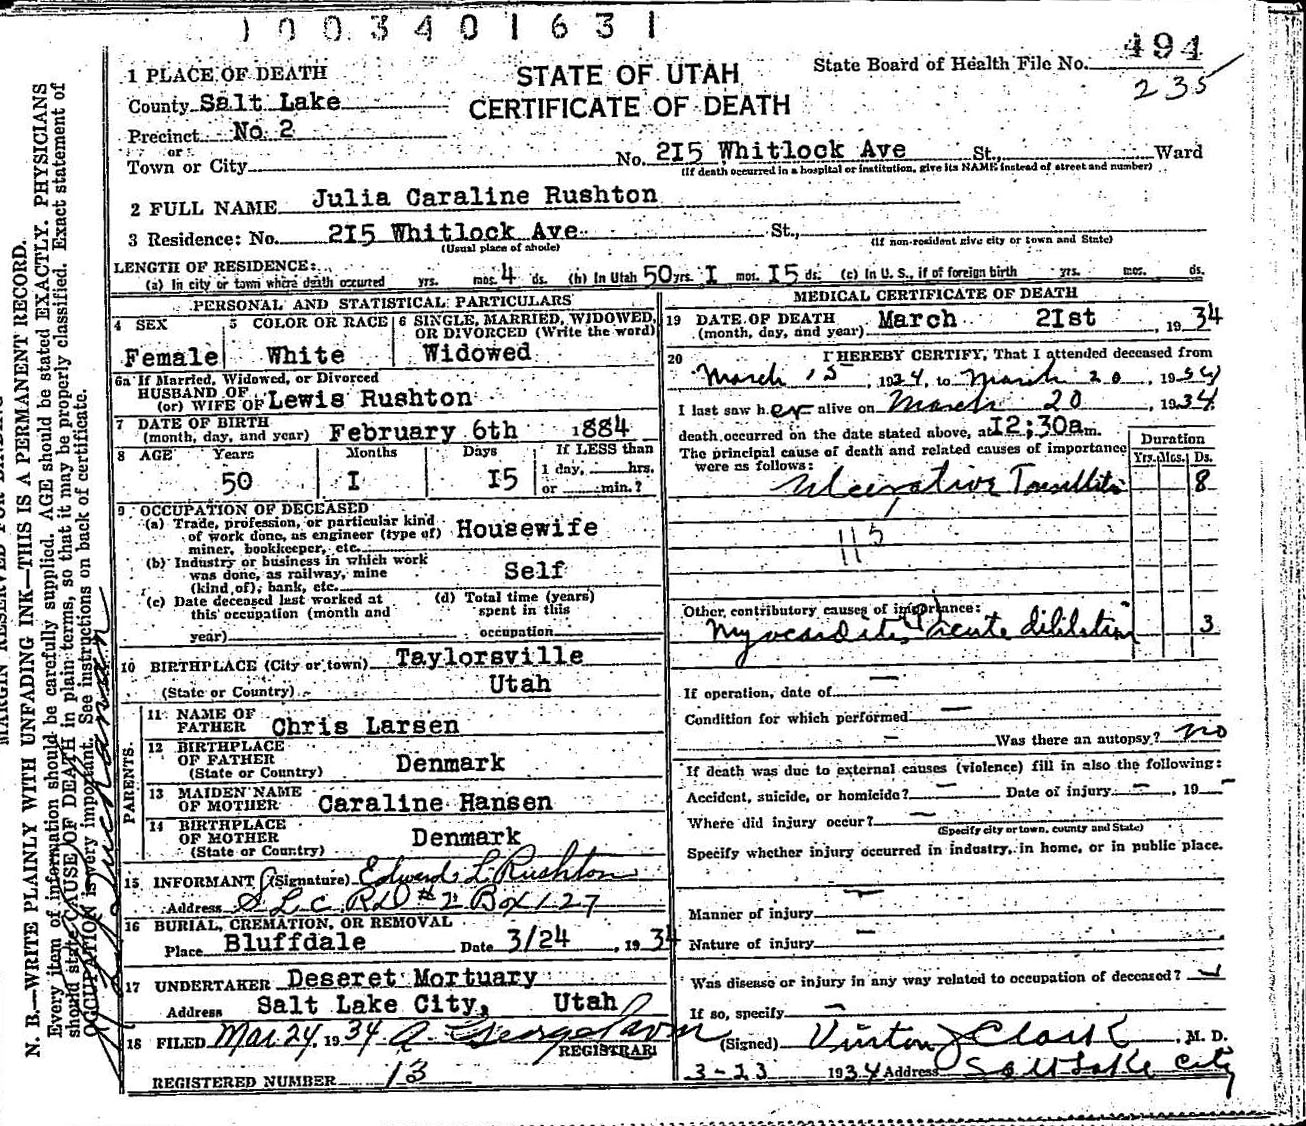 1003401631
494
235
STATE OF UTAH
CERTIFICATE OF DEATH
State Board of Health File No.
1 PLACE OF DEATH
County Salt Lake
Precinct No 2
or
Town or City
No. 2I5 Whitlock Ave St., Ward
(If death occurred in a hospital or institution, give its NAME instead of street and number)
2 FULL NAME Julia Caraline Rushton
3 Residence: No. 2I5 Whitlock Ave St.,
(Usual place of abode) (If non-resident give city or town and State)
LENGTH OF RESIDENCE:
(a) In city or town where death occurred yrs. mos. 4 ds. (b) In Utah 50 yrs. I mos. I5 ds. (c) In U. S., if of foreign birth yrs. mos. ds.
PERSONAL AND STATISTICAL PARTICULARS
4 SEX
Female
5 COLOR OR RACE
White
6 SINGLE, MARRIED, WIDOWED, OR DIVORCED (Write the word)
Widowed
6a If Married, Widowed, or Divorced
HUSBAND OF
(or) WIFE OF Lewis Rushton
7 DATE OF BIRTH
(month, day, and year) February 6th 1884
8 AGE Years Months Days If LESS than
1 day, hrs.
50 I I5 or min.?
9 OCCUPATION OF DECEASED
(a) Trade, profession, or particular kind
of work done, as engineer (type of) Housewife
miner, bookkeeper, etc.
(b) Industry or business in which work
was done, as railway, mine Self
(kind of), bank, etc.
(c) Date deceased last worked at (d) Total time (years)
this occupation (month and spent in this
year) occupation
10 BIRTHPLACE (City or town) Taylorsville
(State or Country) Utah
PARENTS.
11 NAME OF
FATHER Chris Larsen
12 BIRTHPLACE
OF FATHER Denmark
(State or Country)
13 MAIDEN NAME
OF MOTHER Caraline Hansen
14 BIRTHPLACE
OF MOTHER Denmark
(State or Country)
15 INFORMANT (Signature) Edward L Rushton
Address S L C Rd # 2 Box 127
16 BURIAL, CREMATION, OR REMOVAL
Place Bluffdale Date 3/24, 1934
17 UNDERTAKER Deseret Mortuary
Address Salt Lake City, Utah
18 FILED Mar. 24, 1934 George
REGISTRAR
REGISTERED NUMBER 13
MEDICAL CERTIFICATE OF DEATH
19 DATE OF DEATH
(month, day, and year) March 2Ist, 1934
20 I HEREBY CERTIFY, That I attended deceased from
March 15, 1934, to March 20, 1934
I last saw her alive on March 20, 1934
death occurred on the date stated above, at I2;30a m.
The principal cause of death and related causes of importance
were as follows:
Duration
Yrs. Mos. Ds.
Ulcerative Tonsillitis 8
115
Other contributory causes of importance:
Myocarditis acute dililation 3
If operation, date of —
Condition for which performed —
— Was there an autopsy? no
If death was due to external causes (violence) fill in also the following:
Accident, suicide, or homicide? — Date of injury —, 19 —
Where did injury occur? —
(Specify city or town, county and State)
Specify whether injury occurred in industry, in home, or in public place.
—
Manner of injury —
Nature of injury
Was disease or injury in any way related to occupation of deceased?
If so, specify —
(Signed) Vinton J Clark, M. D.
3-23 1934 Address Salt Lake City
MARGIN RESERVED FOR BINDING
N. B.—WRITE PLAINLY WITH UNFADING INK—THIS IS A PERMANENT RECORD.
Every item of information should be carefully supplied. AGE should be stated EXACTLY. PHYSICIANS
should state CAUSE OF DEATH in plain terms, so that it may be properly classified. Exact statement of
OCCUPATION is very important. See instructions on back of certificate.